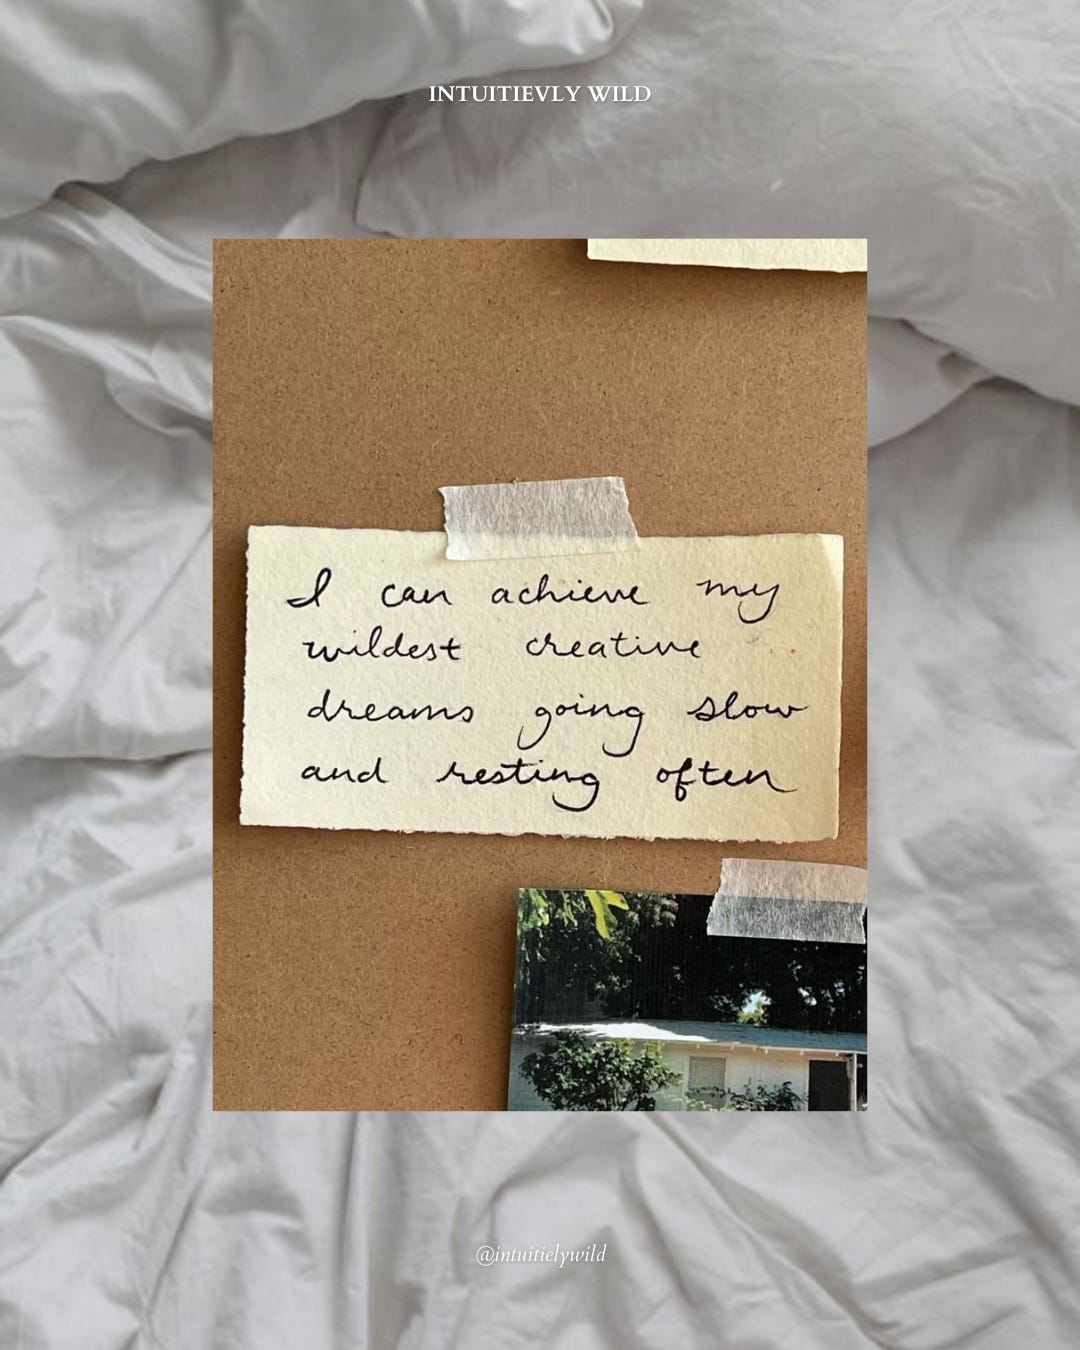 INTUITIEVLY WILD
I can achieve my
wildest creative
dreams going slow
and resting often
@intuitielywild